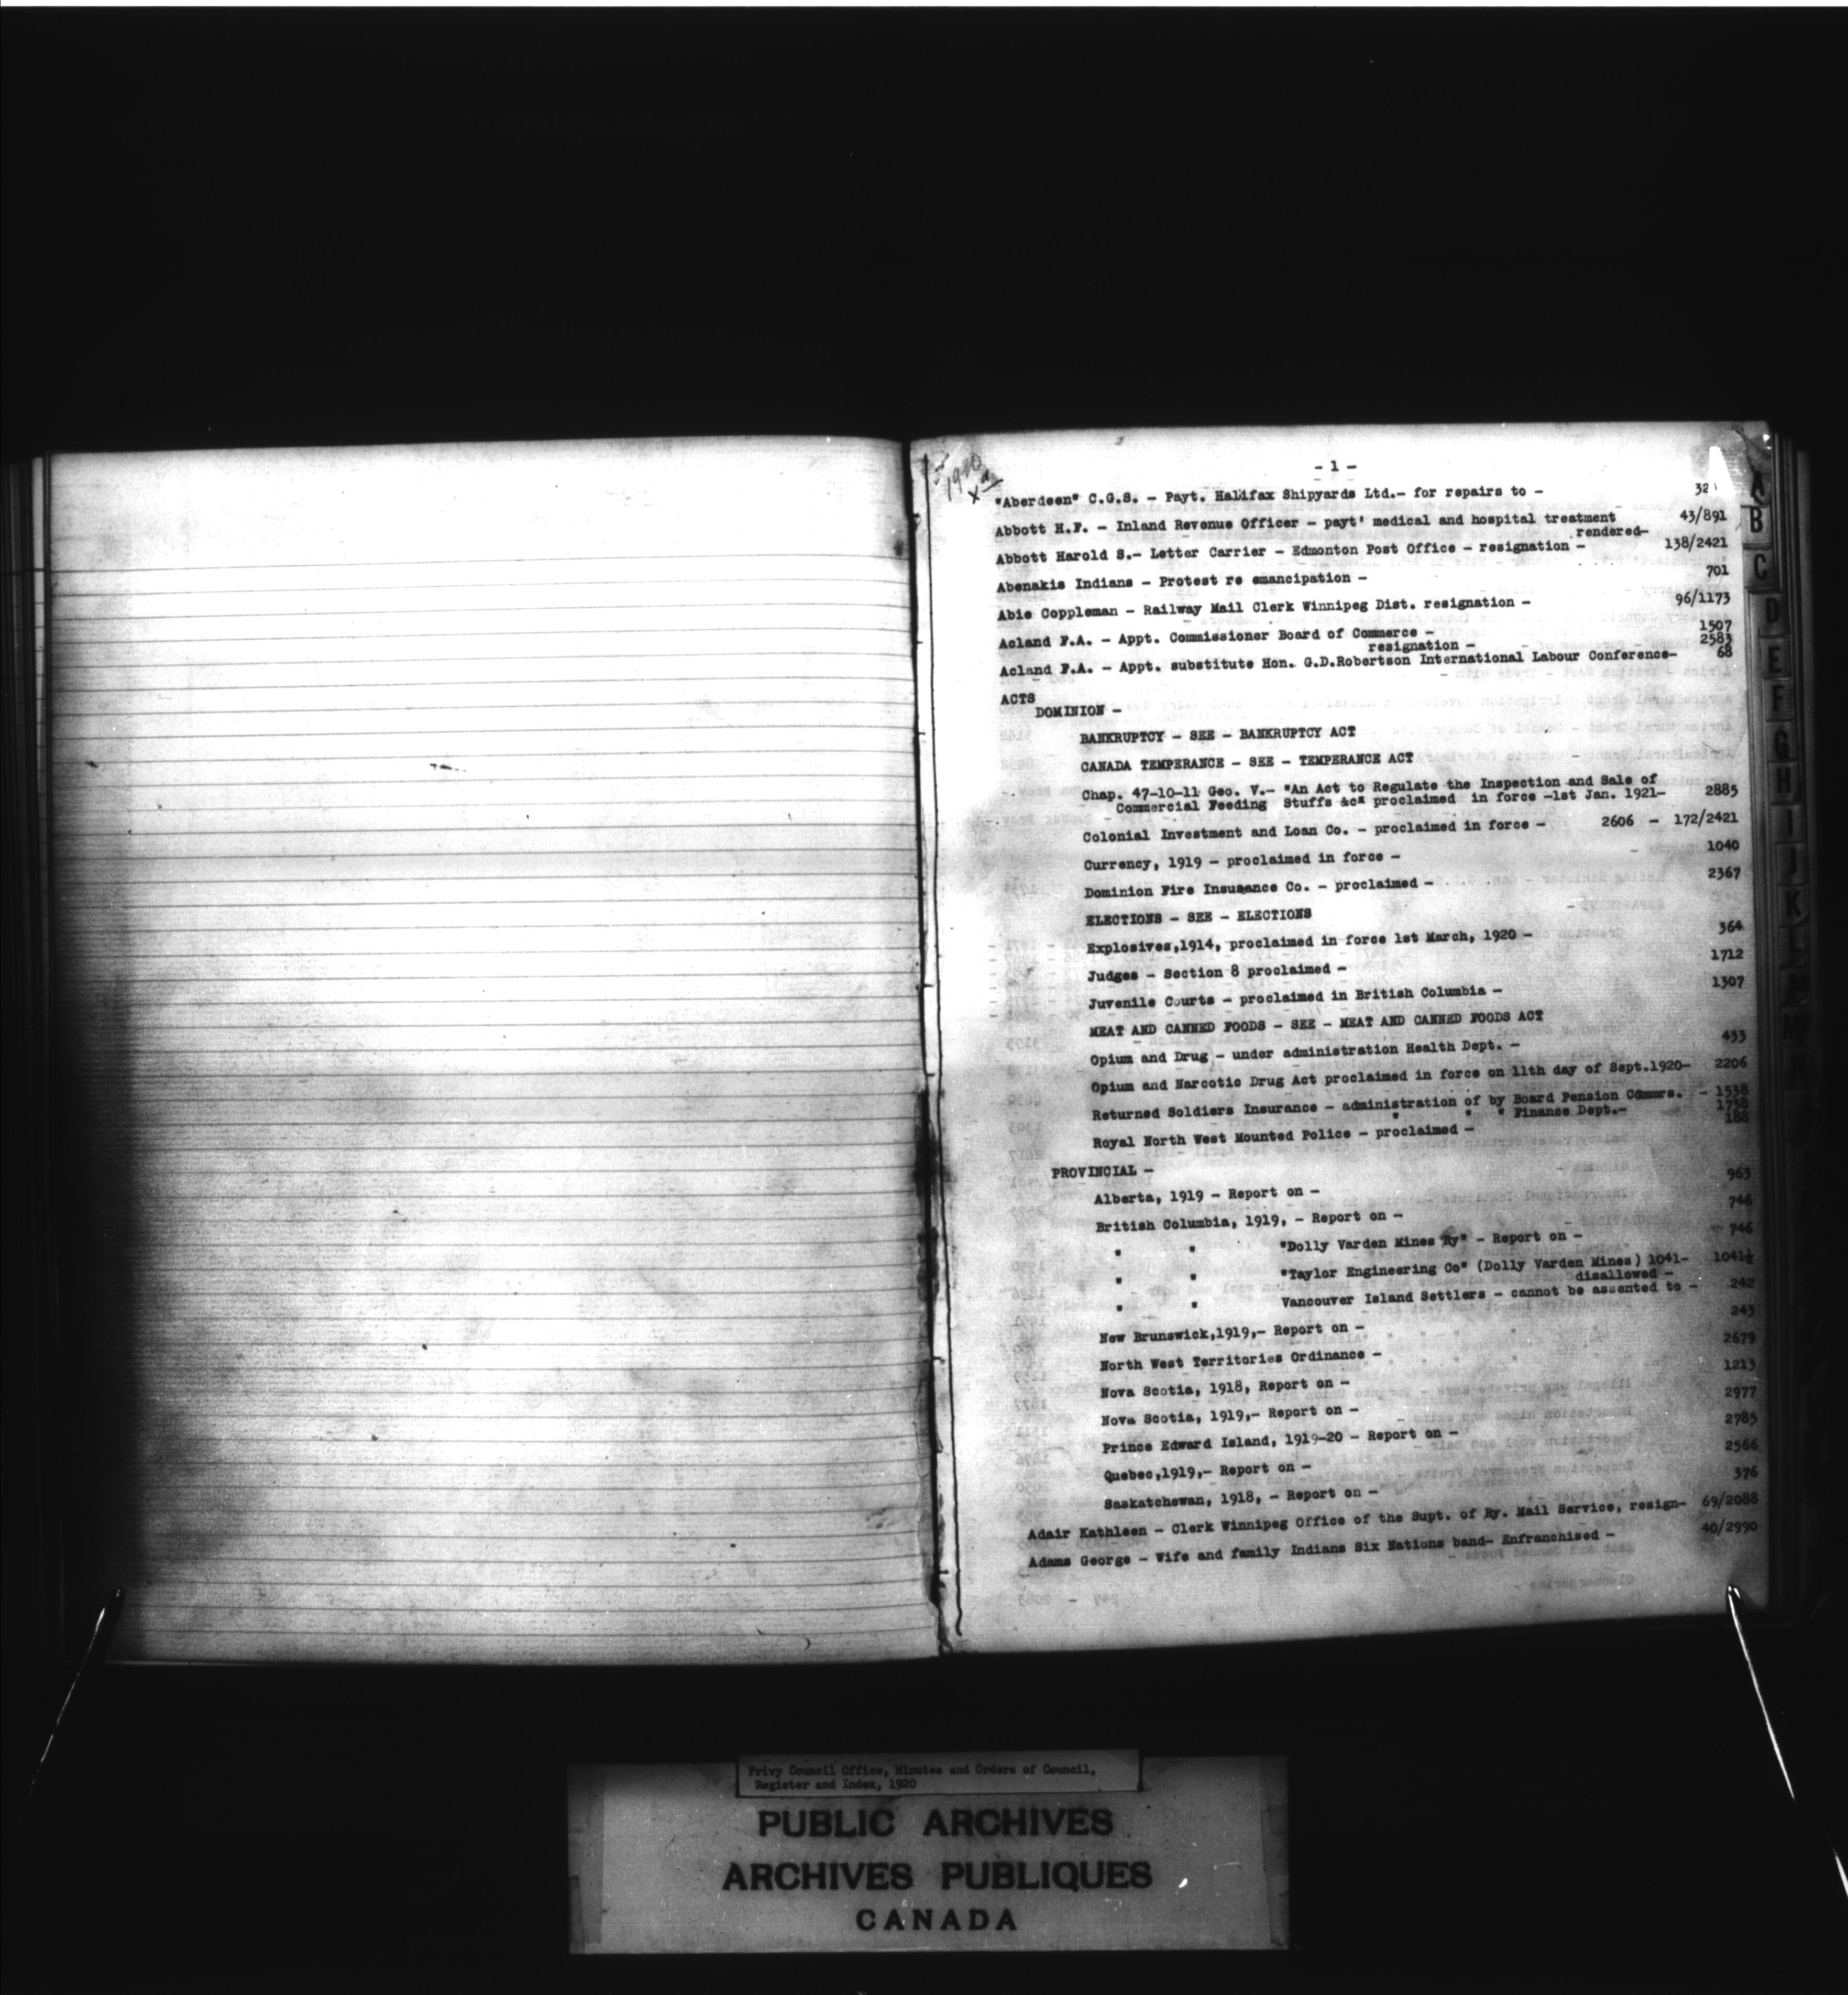 1920
- 1 -
"Aberdeen" C.G.S. - Payt. Halifax Shipyards Ltd.- for repairs to -
Abbott H.F. - Inland Revenue Officer - payt' medical and hospital treatment 43/891
rendered-
Abbott Harold S.- Letter Carrier - Edmonton Post Office - resignation - 138/2421
Abenakis Indians - Protest re emancipation - 701
Abie Coppleman - Railway Mail Clerk Winnipeg Dist. resignation - 96/1173
Acland F.A. - Appt. Commissioner Board of Commerce - 1507
resignation - 2583
Acland F.A. - Appt. substitute Hon. G.D.Robertson International Labour Conference- 68
ACTS
DOMINION -
BANKRUPTCY - SEE - BANKRUPTCY ACT
CANADA TEMPERANCE - SEE - TEMPERANCE ACT
Chap. 47-10-11 Geo. V.- "An Act to Regulate the Inspection and Sale of
Commercial Feeding Stuffs &c" proclaimed in force -1st Jan. 1921- 2885
Colonial Investment and Loan Co. - proclaimed in force - 2606 - 172/2421
Currency, 1919 - proclaimed in force - 1040
Dominion Fire Insurance Co. - proclaimed - 2367
ELECTIONS - SEE - ELECTIONS
Explosives,1914, proclaimed in force 1st March, 1920 - 364
Judges - Section 8 proclaimed - 1712
Juvenile Courts - proclaimed in British Columbia - 1307
MEAT AND CANNED FOODS - SEE - MEAT AND CANNED FOODS ACT
Opium and Drug - under administration Health Dept. - 433
Opium and Narcotic Drug Act proclaimed in force on 11th day of Sept.1920- 2206
Returned Soldiers Insurance - administration of by Board Pension Commrs. - 1538
" " " Finance Dept.- 1738
Royal North West Mounted Police - proclaimed - 188
PROVINCIAL -
Alberta, 1919 - Report on - 963
British Columbia, 1919, - Report on - 746
" " "Dolly Varden Mines Ry" - Report on - 746
" " "Taylor Engineering Co" (Dolly Varden Mines) 1041- 1041½
disallowed -
" " Vancouver Island Settlers - cannot be assented to - 242
New Brunswick,1919,- Report on - 243
North West Territories Ordinance - 2679
Nova Scotia, 1918, Report on - 1213
Nova Scotia, 1919,- Report on - 2977
Prince Edward Island, 1919-20 - Report on - 2785
Quebec,1919,- Report on - 2566
Saskatchewan, 1918, - Report on - 376
Adair Kathleen - Clerk Winnipeg Office of the Supt. of Ry. Mail Service, resign- 69/2088
Adams George - Wife and family Indians Six Nations band- Enfranchised - 40/2990
A
B
C
D
E
F
G
H
I
J
K
L
Privy Council Office, Minutes and Orders of Council,
Register and Index, 1920
PUBLIC ARCHIVES
ARCHIVES PUBLIQUES
CANADA